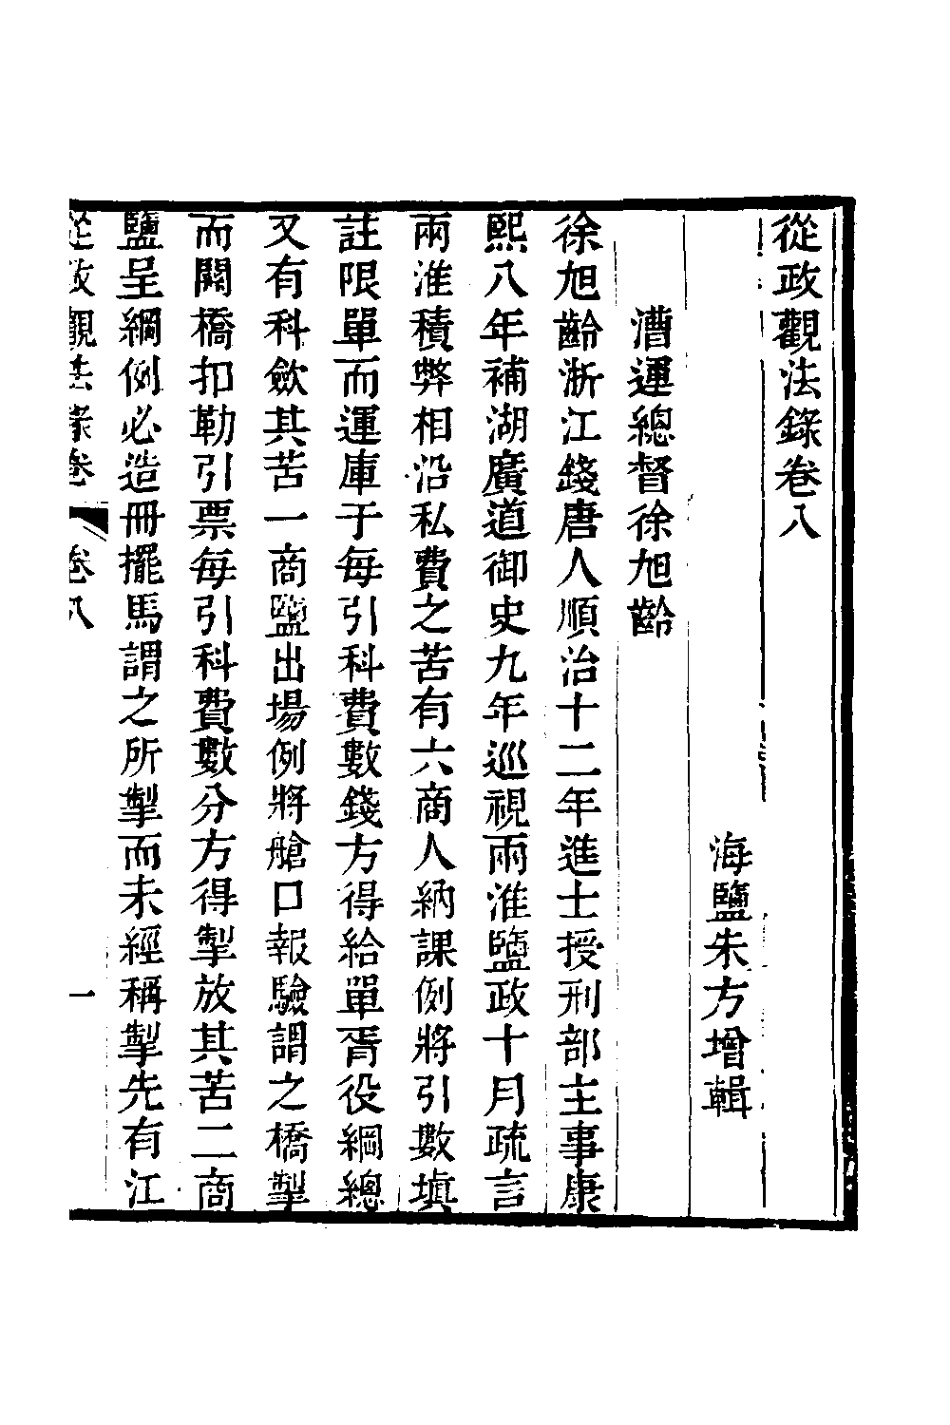 從政觀法錄卷八
海鹽朱方增輯
漕運總督徐旭齡
徐旭齡浙江錢唐人順治十二年進士授刑部主事康
熙八年補湖廣道御史九年巡視兩淮鹽政十月疏言
兩淮積弊相沿私費之苦有六商人納課例將引數塡
註限單而運庫于每引科費數錢方得給單胥役綱總
又有科斂其苦一商鹽出場例將艙口報驗謂之橋掣
而關橋扣勒引票每引科費數分方得掣放其苦二商
鹽呈綱例必造冊擺馬謂之所掣而未經稱掣先有江
從政觀法錄卷 卷八 一